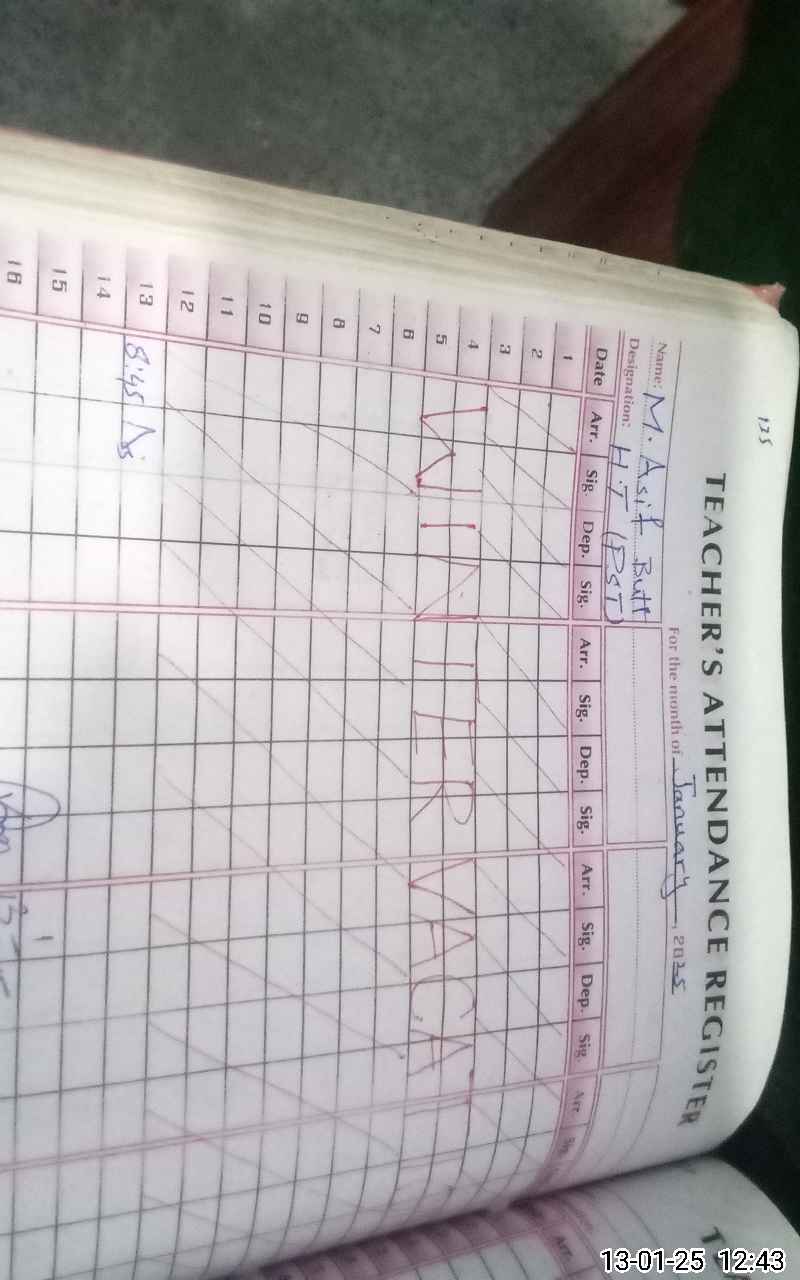 135
TEACHER'S ATTENDANCE REGISTER
For the month of January, 2025
Name: M. Asif Butt
Designation: H.T (PST)
Date Arr. Sig. Dep. Sig. Arr. Sig. Dep. Sig. Arr. Sig. Dep. Sig. Arr.
1
2
3
4
5
WINTER VACAT
6
7
8
9
10
11
12
13 8:45
14
15
16
13-01-25 12:43